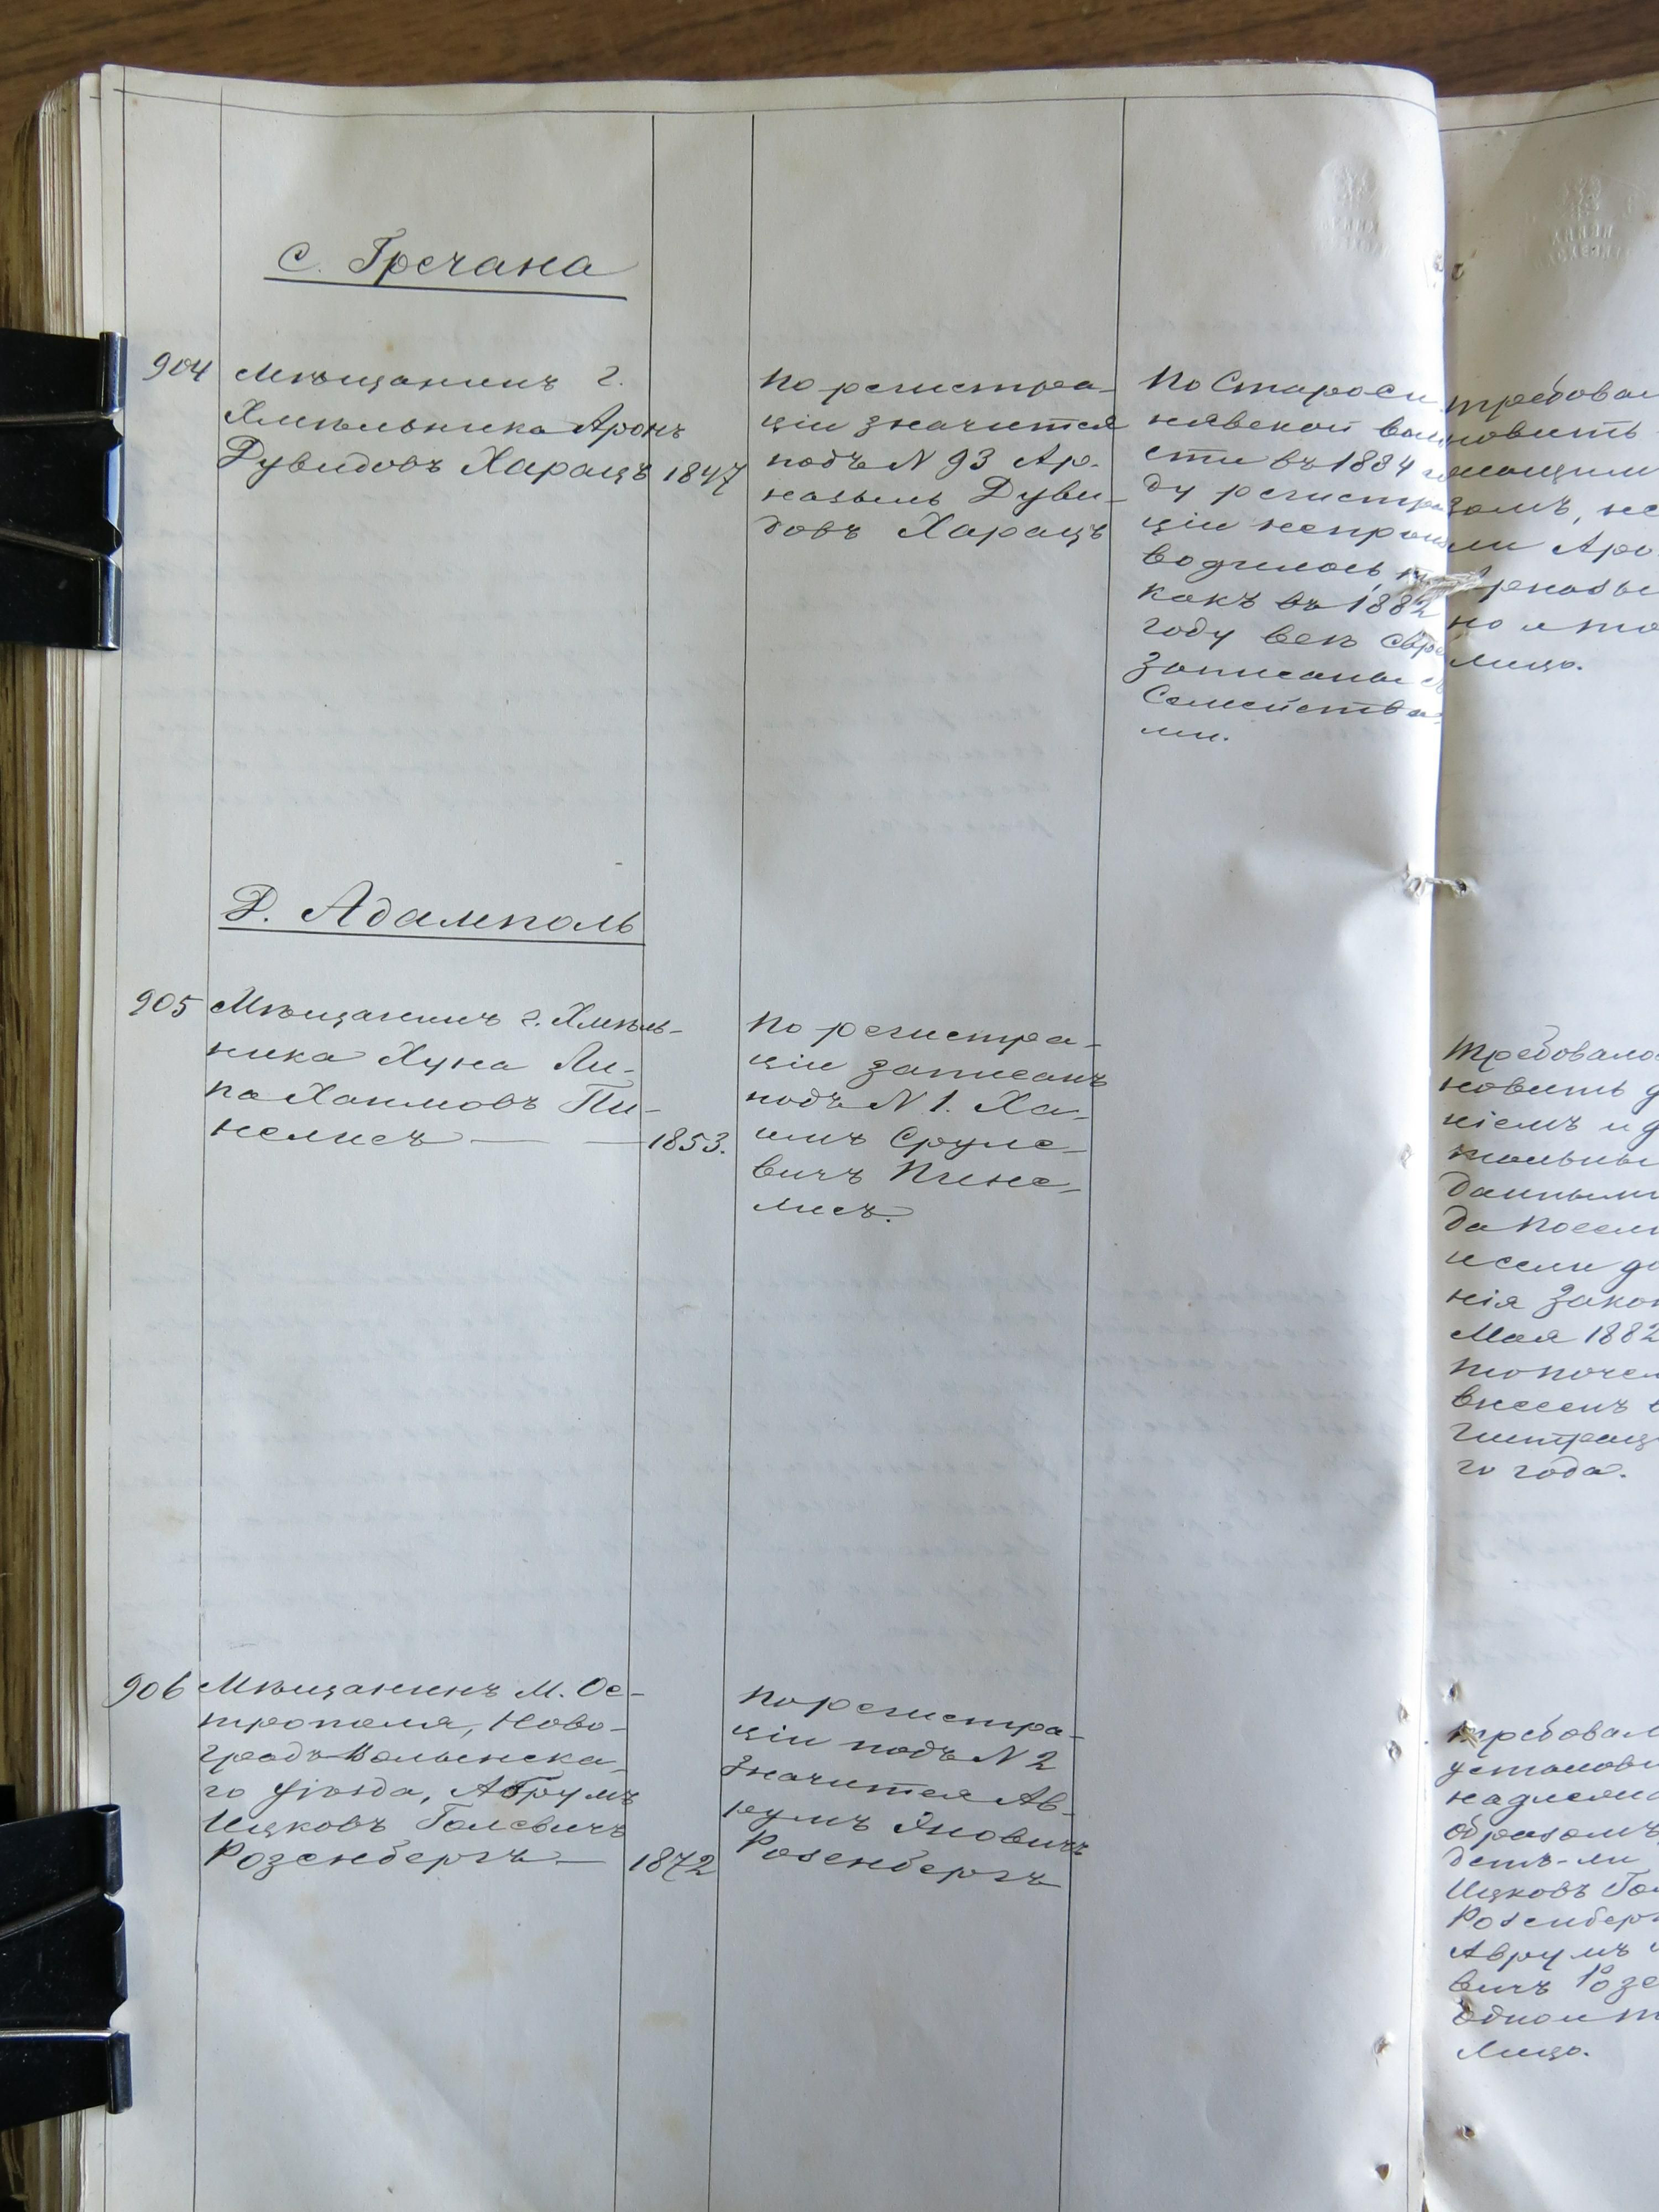 с. Гречана
904 Мѣщанинъ г.
Хмѣльника Аронъ
Дувидовъ Харацъ 1847
По регистра-
ціи значится
подъ N 93 Ар-
назыль Дуви-
довъ Харацъ
По Староси
нявской
сти въ 1884 го
ду регистра
ціи непроиз
водилось,
какъ въ 1882
году всѣ Евре
записаны съ
Семейства-
ми.
требовал
новить
ующим
зомъ, не
ли Аро
но и то
лицо.
Д. Адамполь
905 Мѣщанинъ г. Хмѣль-
ника Хуна Ли-
па Хаимовъ Пи-
нелисъ — — 1853.
По регистра-
ціи записанъ
подъ N 1. Ха-
имъ Сруле-
вичъ Пине-
лисъ.
Требовало
новить д
ніемъ и д
данными
да посели
и если до
нія Закон
Мая 1882
то почем
внесенъ в
гистрац
го года.
906 Мѣщанинъ М. Ос-
трополя, Ново-
градъ Волынска-
го уѣзда, Абрумъ
ИцковъГолевичъ
Розенбергъ — 1872
По регистра-
ціи подъ N 2
значится Ав-
румъ Яновичъ
Розенбергъ
требовал
установи
надлежа
образомъ
Ицковъ Го
Розенберг
Аврумъ
вичъ Розе
одно и т
лицо.